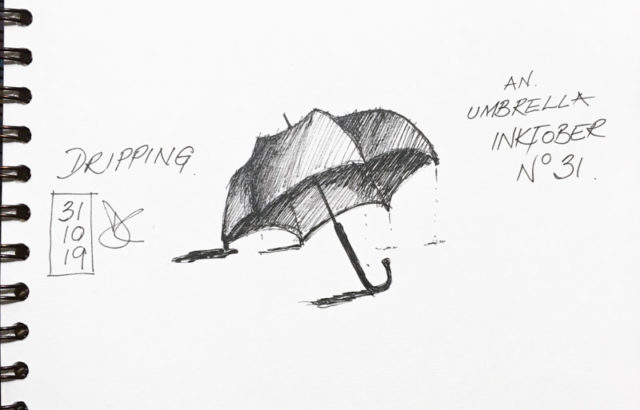 DRIPPING.
31
10
19
AN.
UMBRELLA
INKTOBER
Nº 31.